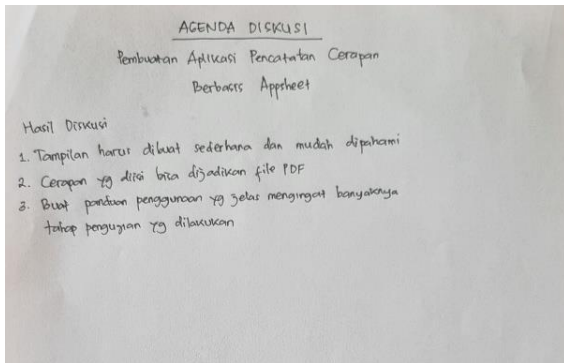 AGENDA DISKUSI
Pembuatan Aplikasi Pencatatan Cerapan
Berbasis Appsheet
Hasil Diskusi
1. Tampilan harus dibuat sederhana dan mudah dipahami
2. Cerapan yg diisi bisa dijadikan file PDF
3. Buat panduan penggunaan yg jelas mengingat banyaknya
tahap pengujian yg dilakukan